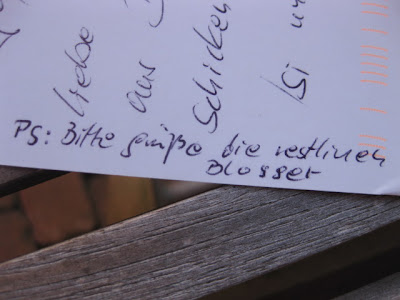 Liebe
aus
Schicken
Isi
PS: Bitte grüße die restlichen
Blogger